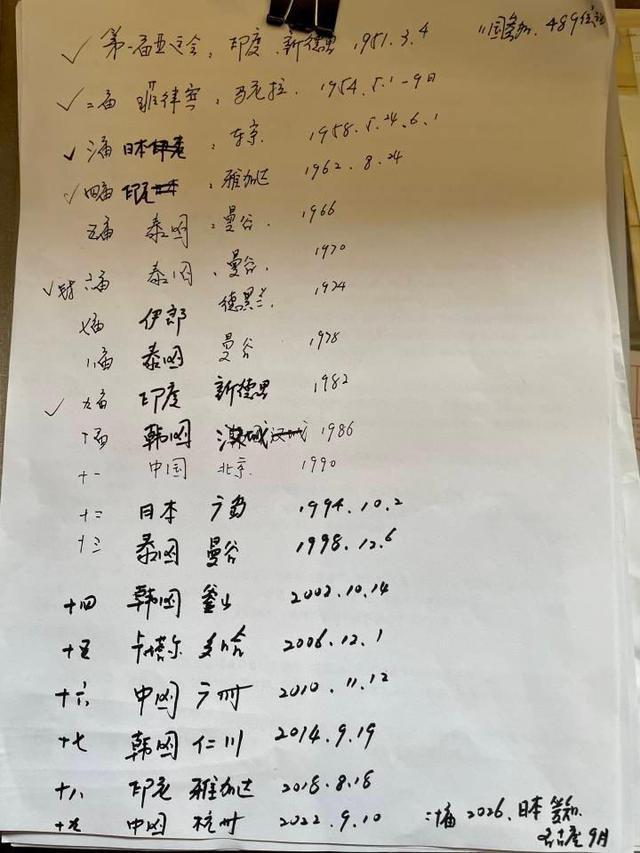 ✓ 第一届亚运会：印度 新德里 1951.3.4 11国参加．489位
✓ 二届 菲律宾，马尼拉． 1954.5.1-9日
✓ 三届 日本 ，东京． 1958.5.24.6.1
✓ 四届 印尼 ，雅加达 1962.8.24
五届 泰国 ，曼谷． 1966
✓ 六届 泰国 ，曼谷． 1970
七届 伊郎 德黑兰． 1974
八届 泰国 曼谷 1978
✓ 九届 印度 新德里 1982
十届 韩国 汉城 1986
十一 中国 北京． 1990
十二 日本 广岛 1994.10.2
十三 泰国 曼谷 1998.12.6
十四 韩国 釜山 2002.10.14
十五 卡塔尔 多哈 2006.12.1
十六 中国 广州 2010.11.12
十七 韩国 仁川 2014.9.19
十八 印尼 雅加达 2018.8.18
十九 中国 杭州 2022.9.10
二十届 2026．日本 爱知．
名古屋 9月